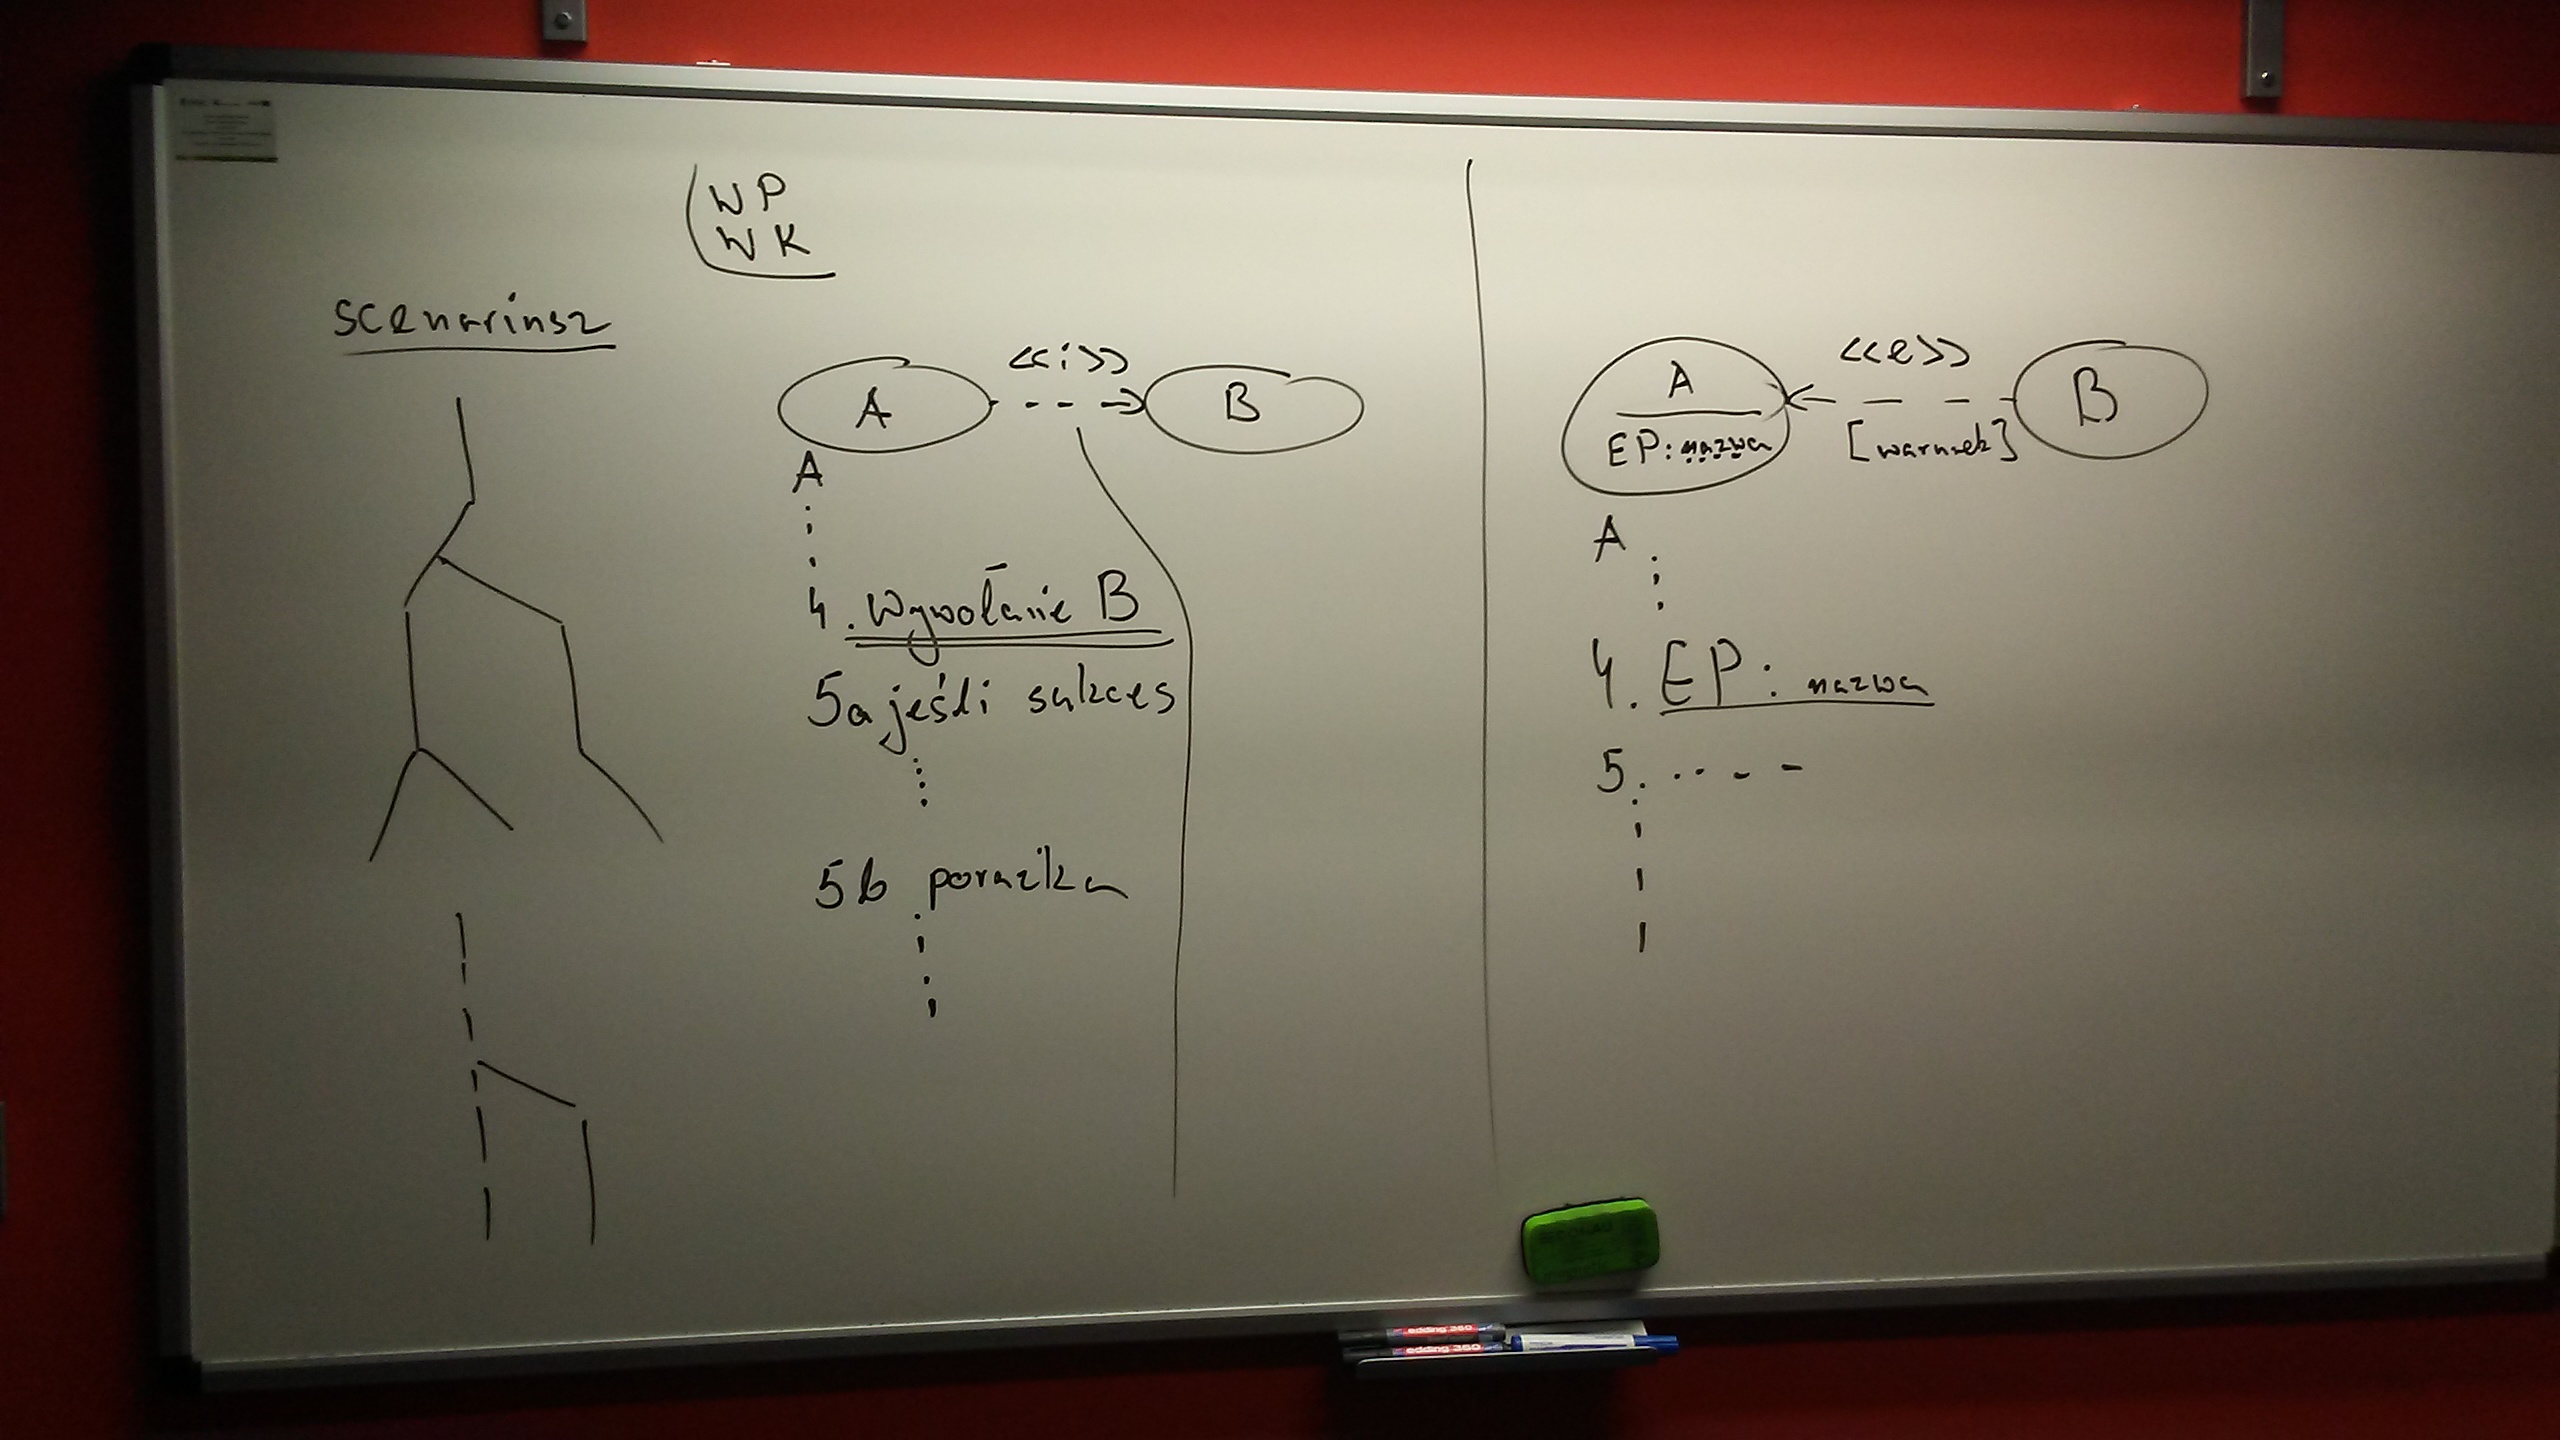 WP
WK
scenariusz
A <<i>> B
A
4. Wywołanie B
5a jeśli sukces
5b porażka
A <<e>> B
EP: nazwa [warunek]
A
4. EP: nazwa
5.
edding 360
edding 360